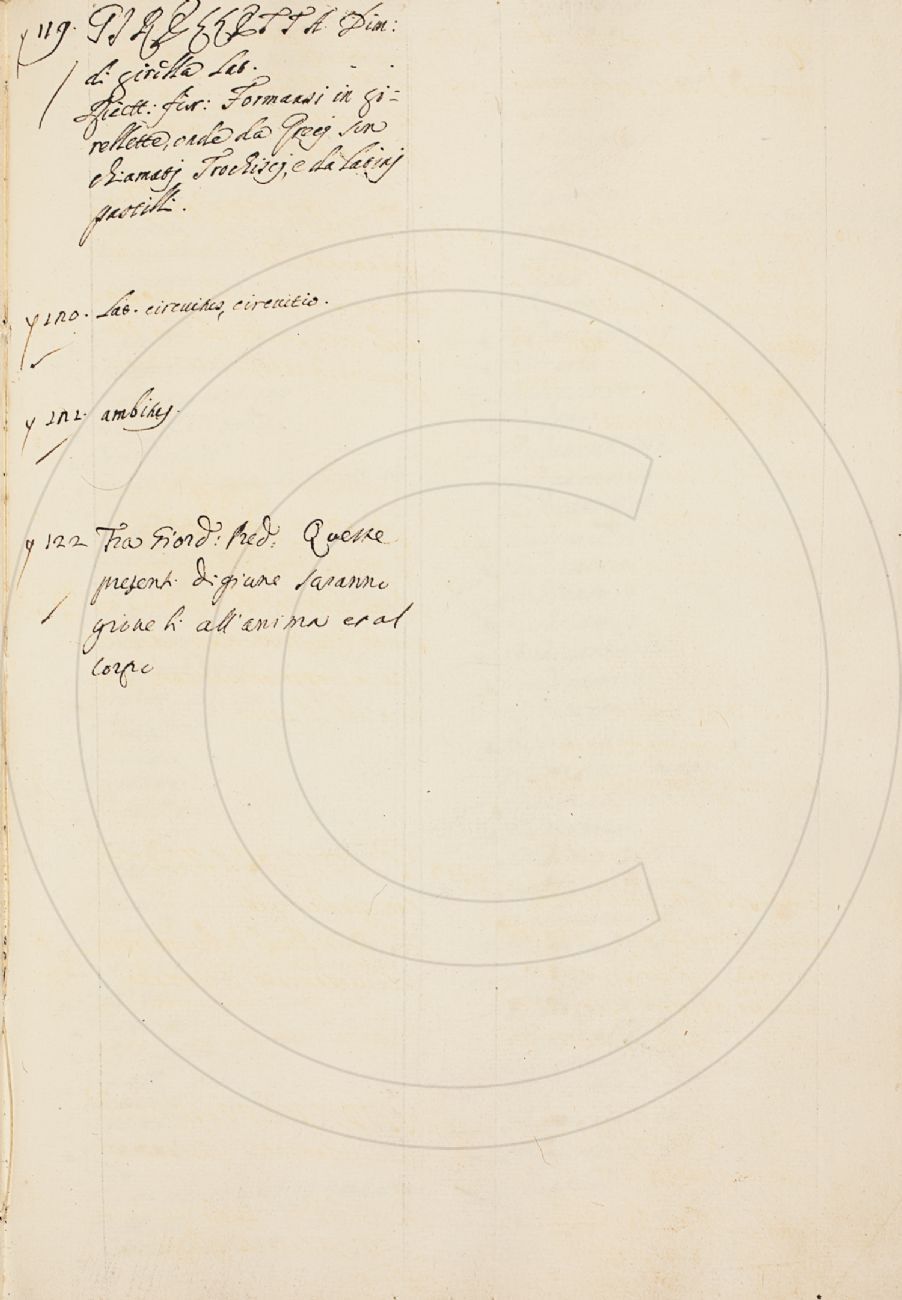 y 119. GIRELLETTA Dim:
di girella Lat.
Ricett: fior: Formansi in gi=
rellette, onde da Greci son
chiamati Trochisci, e da Latinj
pastilli.
y 120. Lat. circuitus, circuitio.
y 121. ambitus.
y 122 Fra Giord: Pred: Queste
presenti digiune saranno
giove li all'anima et al
corpo